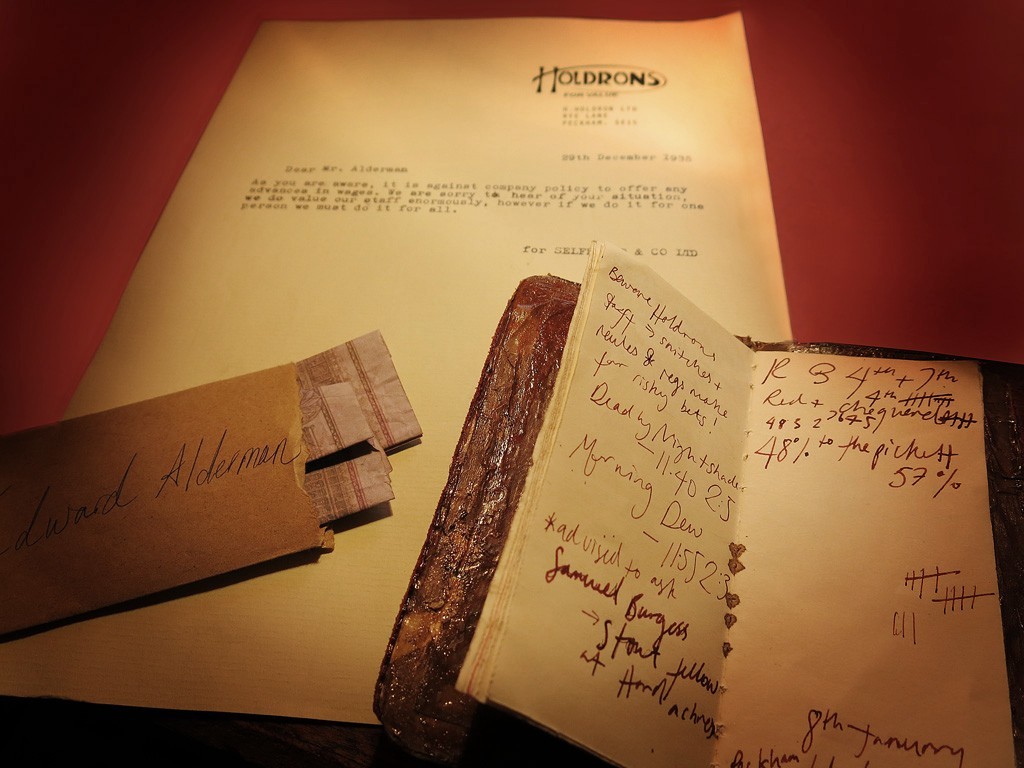 HOLDRONS
FOR VALUE
H. HOLDRON LTD
RYE LANE
PECKHAM, SE15
29th December 1935
Dear Mr. Alderman
As you are aware, it is against company policy to offer any
advances in wages. We are sorry to hear of your situation,
we do value our staff enormously, however if we do it for one
person we must do it for all.
for & CO LTD
Edward Alderman
Beware Holdrons
staff → snitches +
rules & regs make
for risky bets!
Deadly Nightshade
- 11:40 2:5
Morning Dew
- 11:55 2:3
*advised to ask
Samuel Burgess
→ Stout fellow
at Hond
R B 4th + 7th
Red + 4th
chequered
48%
to the pickett
57%
8th January
Peckham